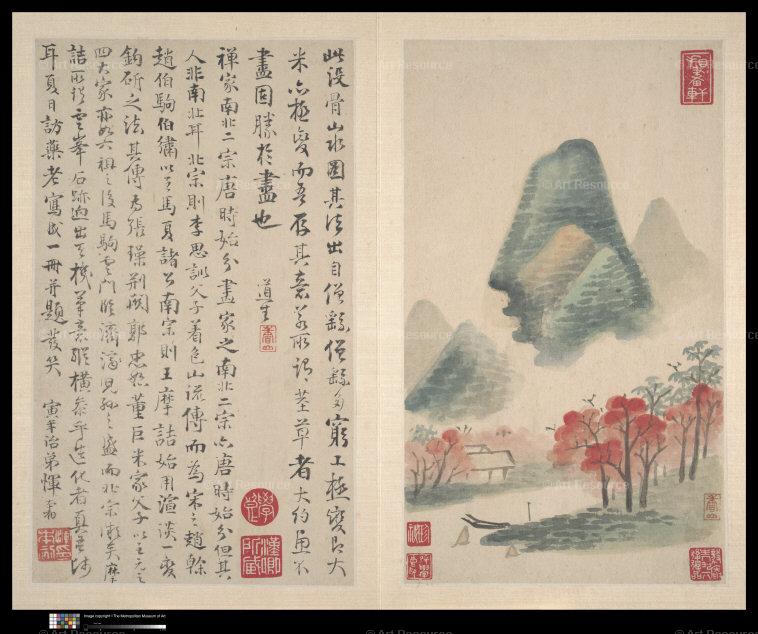 此没骨山水圖其法出自僧繇僧繇多窮工極變即大
米亦極變而吾存其意若所謂茎草者大約畫不
盡固勝於盡也
道生
香山
禪家南北二宗唐時始分畫家之南北二宗亦唐時始分但其
人非南北耳北宗則李思訓父子着色山流傳而為宋之趙幹
趙伯駒伯驌以至馬夏諸公南宗則王摩詰始用渲淡一變
鈎斫之法其傳為張璪荊關郭忠恕董巨米家父子以至元之
四大家亦如六祖之後馬駒雲門臨濟兒孫之盛而北宗微矣摩
詰所謂雲峯石跡迥出天機筆意縱橫參乎造化者真
耳夏日訪藥老寫成一冊并題發笑
治弟惲向
漢卿所藏
香山
Image copyright © The Metropolitan Museum of Art
© Art Resource